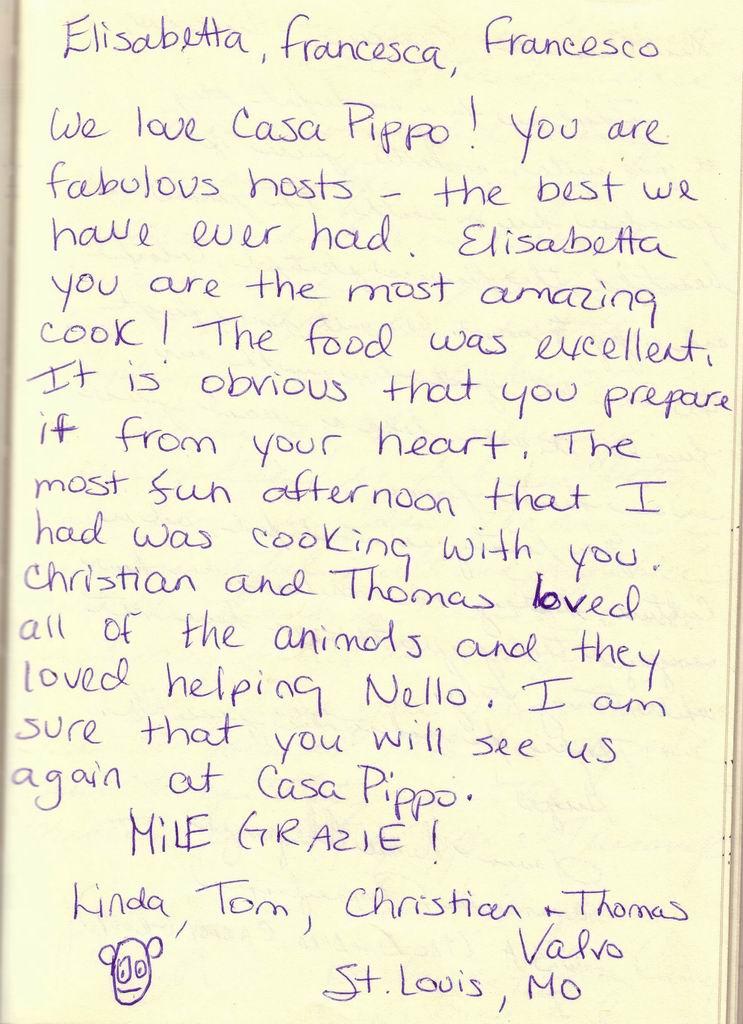 Elisabetta, Francesca, Francesco
We love Casa Pippo! You are
fabulous hosts - the best we
have ever had. Elisabetta
you are the most amazing
cook! The food was excellent.
It is obvious that you prepare
it from your heart. The
most fun afternoon that I
had was cooking with you.
Christian and Thomas loved
all of the animals and they
loved helping Nello. I am
sure that you will see us
again at Casa Pippo.
MILE GRAZIE!
Linda, Tom, Christian + Thomas
Valvo
St. Louis, MO